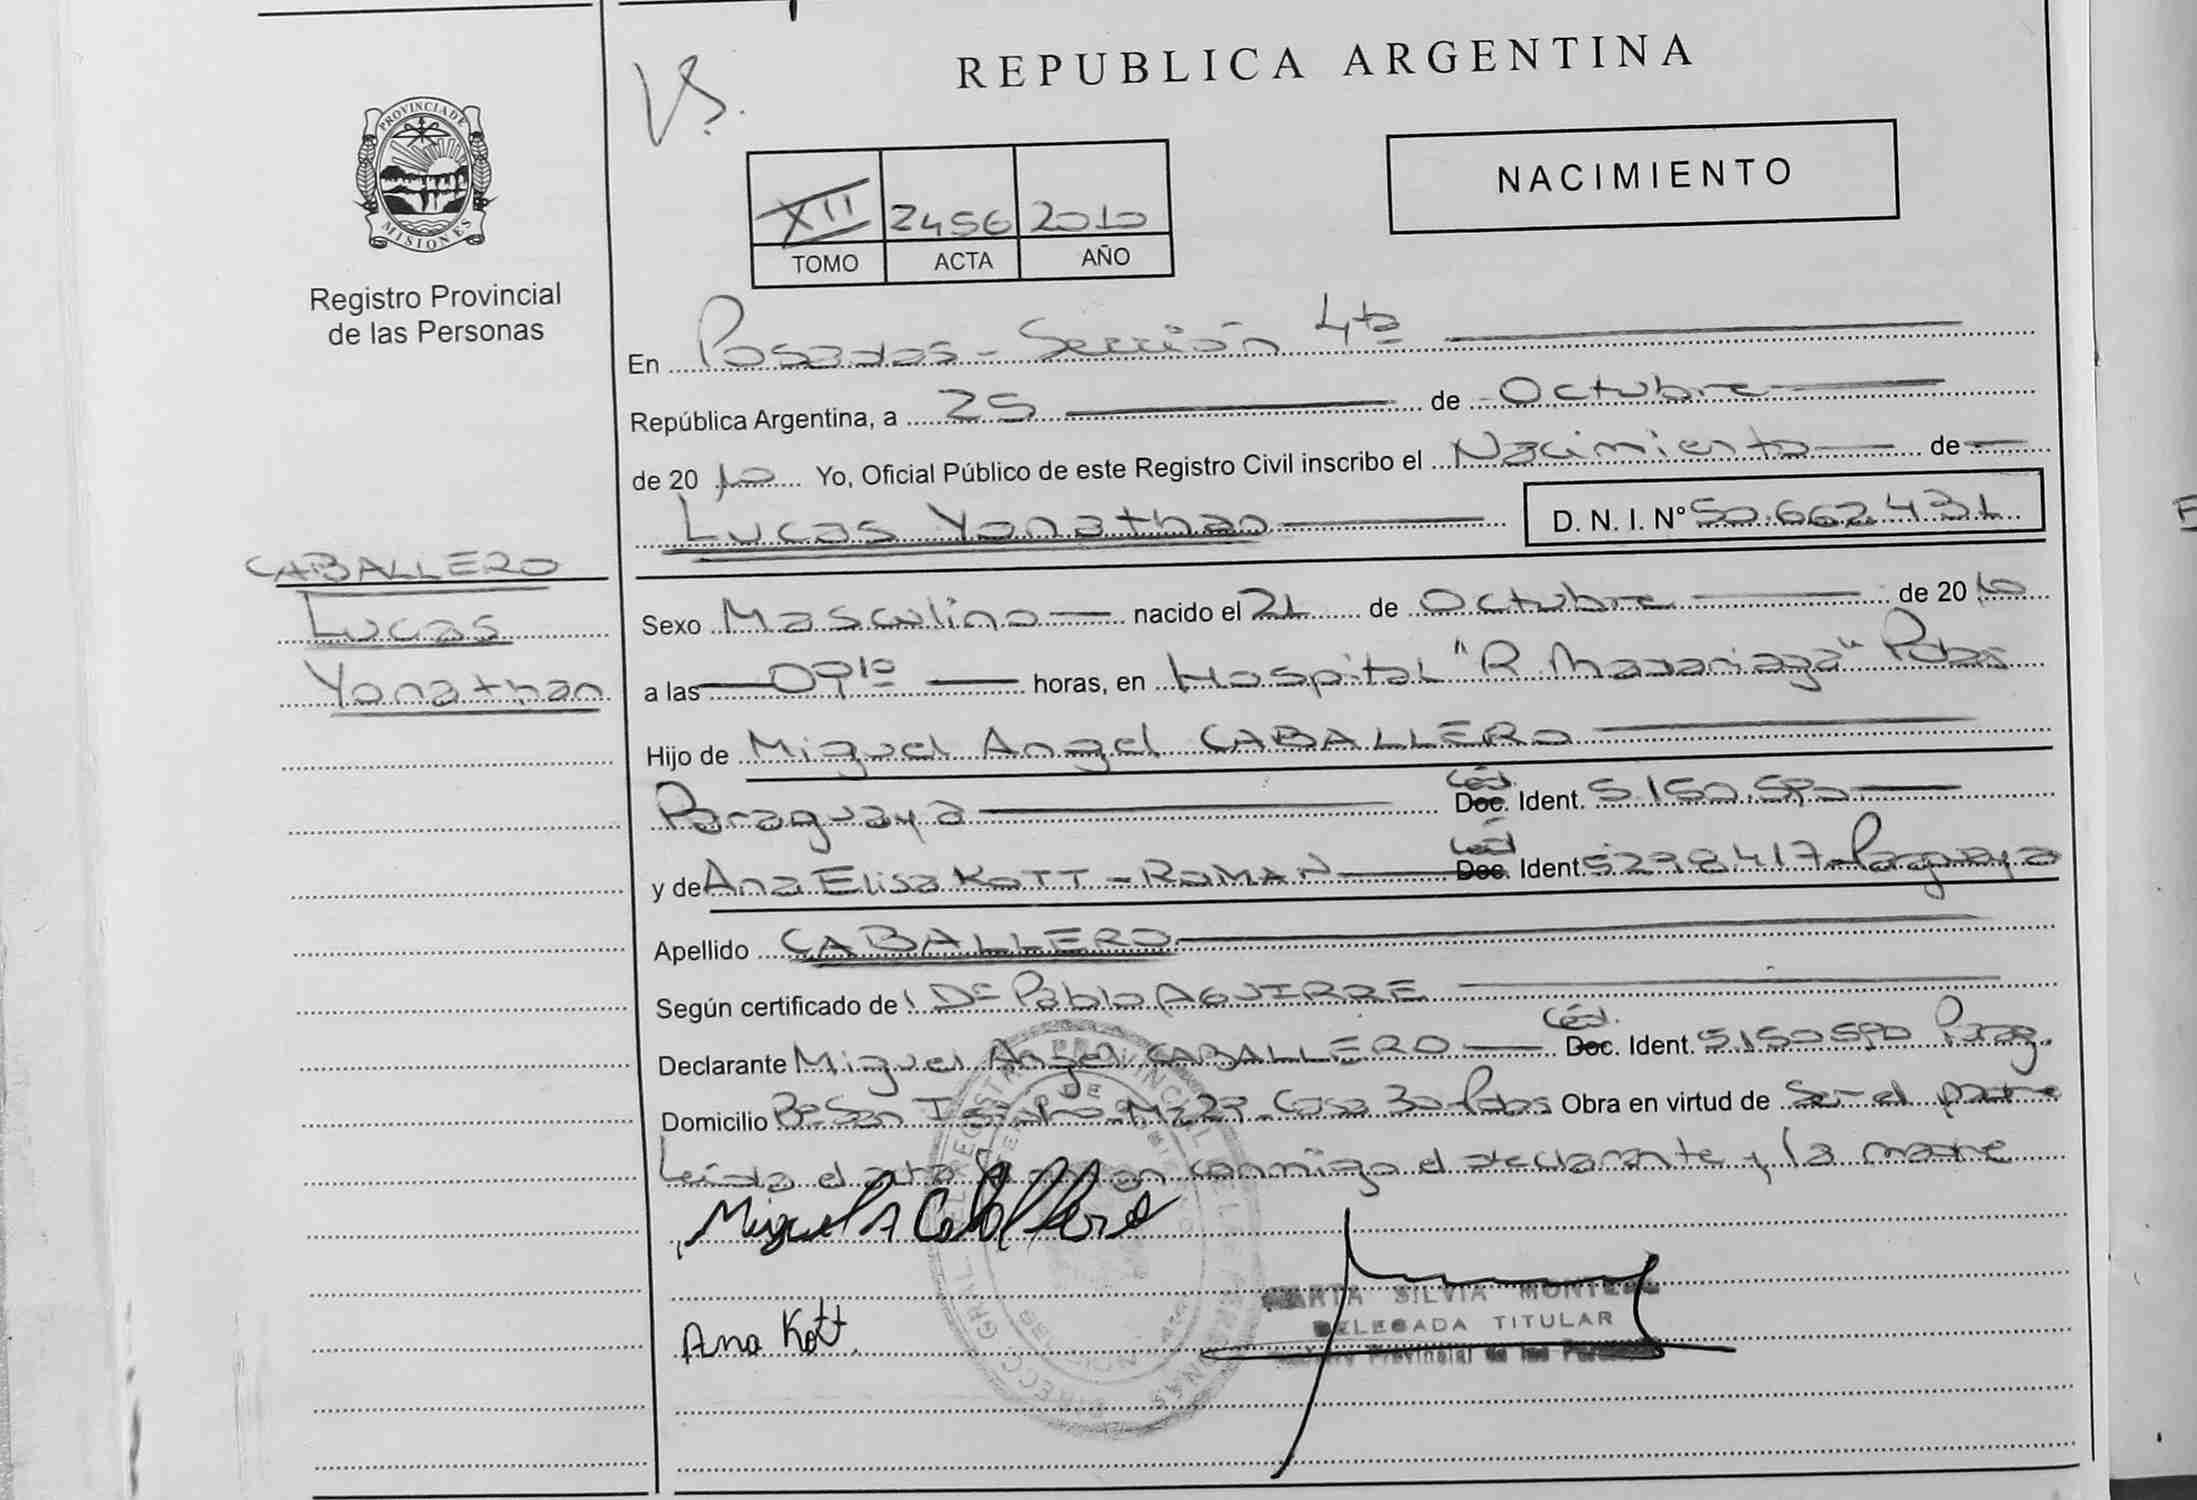 REPUBLICA ARGENTINA
PROVINCIA DE MISIONES
Registro Provincial
de las Personas
NACIMIENTO
XII 2456 2010
TOMO ACTA AÑO
En Posadas - Sección 4ta
República Argentina, a 25 de Octubre
de 2010 Yo, Oficial Público de este Registro Civil inscribo el Nacimiento de
Lucas Yonathan D. N. I. N° 50.662.431
CABALLERO
Lucas
Yonathan
Sexo Masculino nacido el 21 de Octubre de 2010
a las 09 10 horas, en Hospital "R Madariaga" Pdas
Hijo de Miguel Angel CABALLERO
Paraguaya Céd. Doc. Ident. 5.150.590
y de Ana Elisa KOTT - ROMAN Céd Doc. Ident. 5298417 Paraguaya
Apellido CABALLERO
Según certificado de Dr Pablo AGUIRRE
Declarante Miguel Angel CABALLERO Céd. Doc. Ident. 5.150590 Parag.
Domicilio Bº San Isidro Mz 29 - Casa 30 - Pdas Obra en virtud de Ser el padre
Leída el acta firman conmigo el declarante y la madre
Miguel A Caballero
Ana Kott
MARTA SILVIA MONTERO
DELEGADA TITULAR
Registro Provincial de las Personas